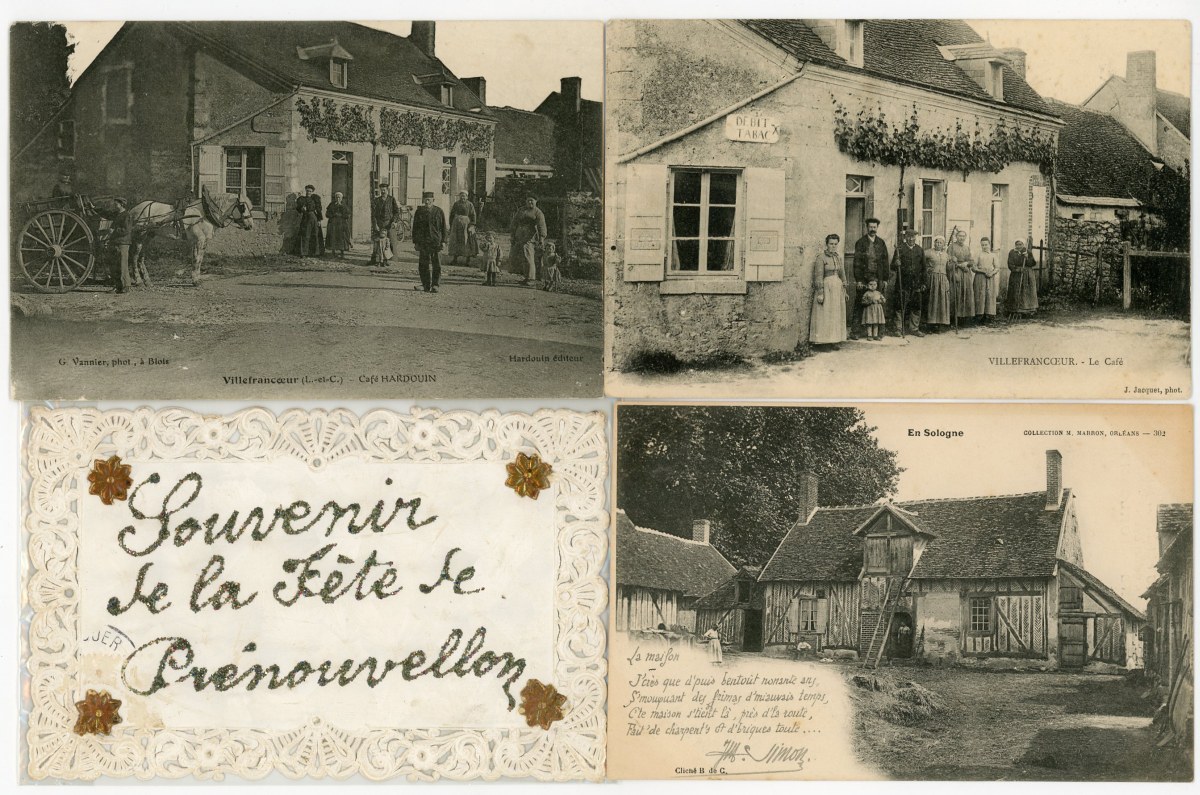 G. Vannier, phot., à Blois
Hardouin éditeur
Villefrancœur (L.-et-C.) - Café HARDOUIN
DÉBIT
TABAC
VILLEFRANCŒUR. - Le Café
J. Jacquet, phot.
Souvenir
de la Fête de
Prénouvellon
JUER
En Sologne
COLLECTION M. MARRON, ORLÉANS — 302
La maison
J'crès que d'puis bentoût nonante ans,
S'mouquant des frimas d'mauvais temps,
C'te maison s'tient là, près d'la route,
Fait' de charpent's et d'briques toute....
Simon
Cliché B de C.